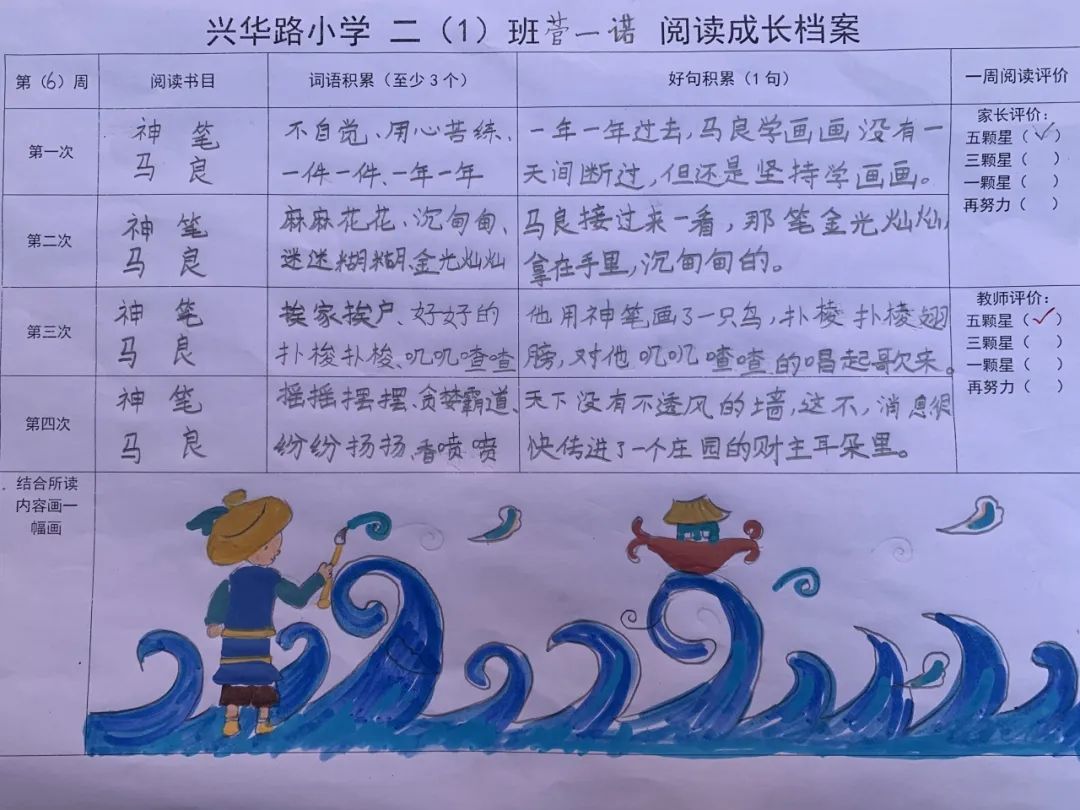 兴华路小学 二（1）班 营一诺 阅读成长档案
第（6）周 阅读书目 词语积累（至少3个） 好句积累（1句） 一周阅读评价
第一次
神笔
马良
不自觉、用心苦练、
一件一件、一年一年
一年一年过去，马良学画画没有一
天间断过，但还是坚持学画画。
家长评价：
五颗星（✓）
三颗星（ ）
一颗星（ ）
再努力（ ）
第二次
神笔
马良
麻麻花花、沉甸甸、
迷迷糊糊、金光灿灿
马良接过来一看，那笔金光灿灿，
拿在手里，沉甸甸的。
第三次
神笔
马良
挨家挨户、好好的
扑梭扑梭、叽叽喳喳
他用神笔画了一只鸟，扑棱扑棱翅
膀，对他叽叽喳喳的唱起歌来。
教师评价：
五颗星（✓）
三颗星（ ）
一颗星（ ）
再努力（ ）
第四次
神笔
马良
摇摇摆摆、贪婪霸道、
纷纷扬扬、香喷喷
天下没有不透风的墙，这不，消息很
快传进了一个庄园的财主耳朵里。
结合所读
内容画一
幅画